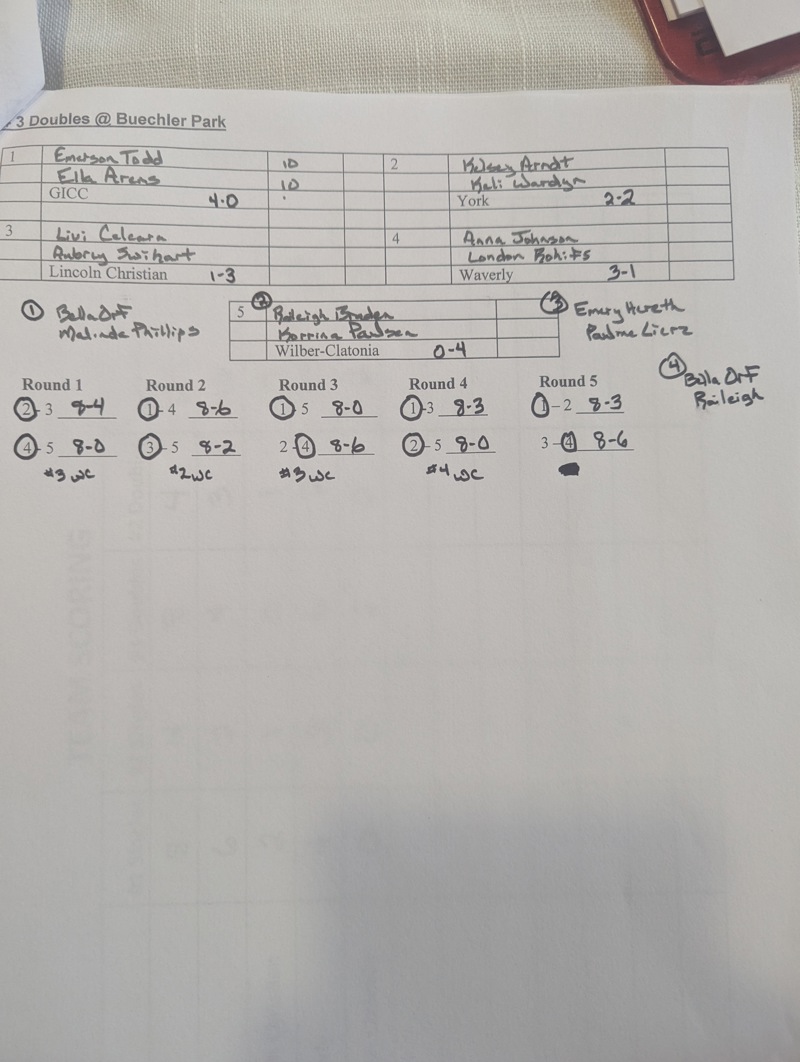 3 Doubles @ Buechler Park
1 Emerson Todd 10 2 Kelsey Arndt
Ella Arens 10 Kali Wardyn
GICC 4-0 York 2-2
3 Livi 4 Anna Johnson
Aubrey Swihart London
Lincoln Christian 1-3 Waverly 3-1
① Bella Orf 5 ② Raleigh Bruden ③ Emery Hereth
Malinda Phillips Korrina Paulsen Pauline Lierz
Wilber-Clatonia 0-4
④ Bella Orf
Raileigh
Round 1 Round 2 Round 3 Round 4 Round 5
2-3 8-4 1-4 8-6 1-5 8-0 1-3 8-3 1-2 8-3
4-5 8-0 3-5 8-2 2-4 8-6 2-5 8-0 3-4 8-6
#3 WC #2 WC #3 WC #4 WC
TEAM SCORING